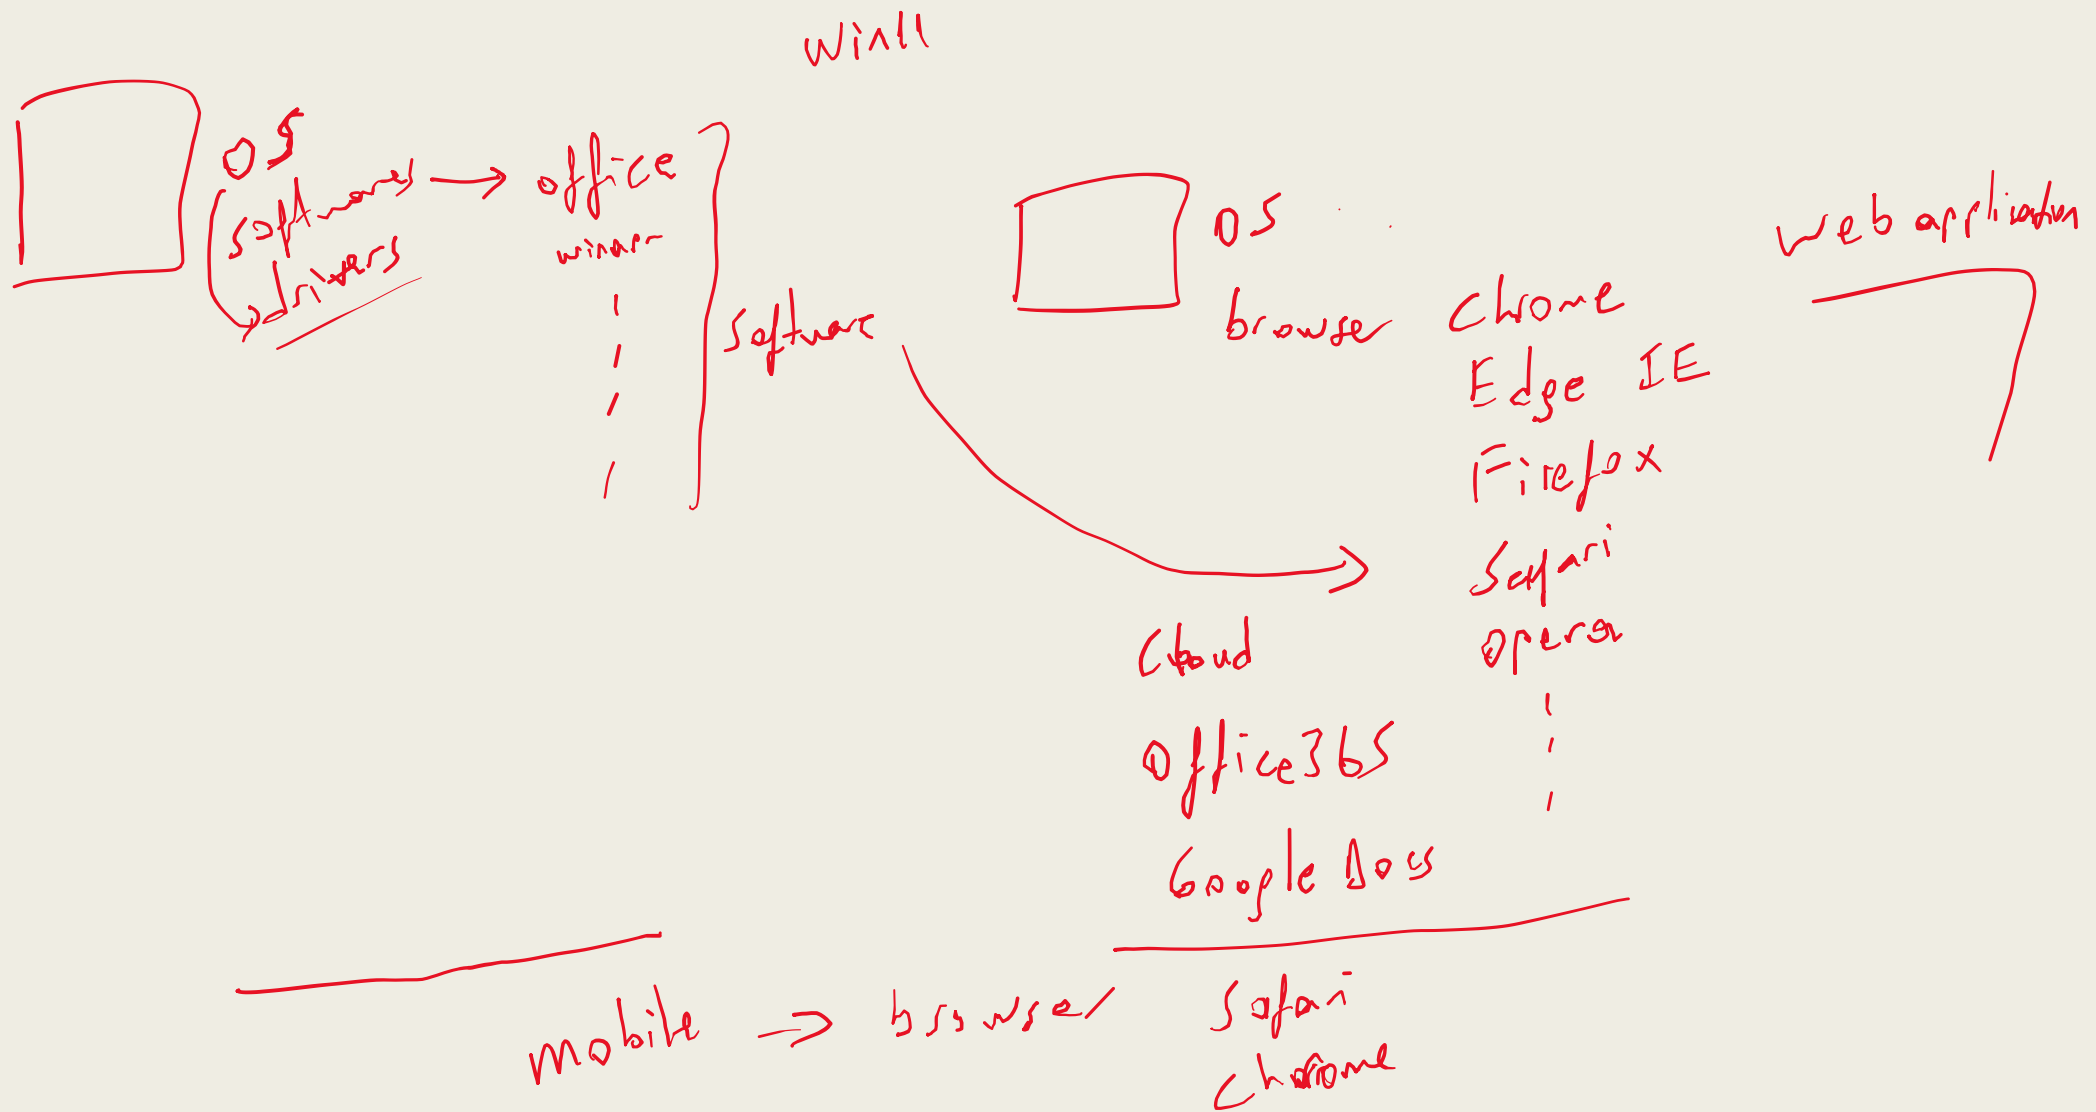 Win11
OS
softwares
drivers
office
winapr
software
OS
browser
Chrome
Edge IE
Firefox
Safari
opera
web application
Cloud
Office365
Google Docs
mobile
browser
Safari
Chrome